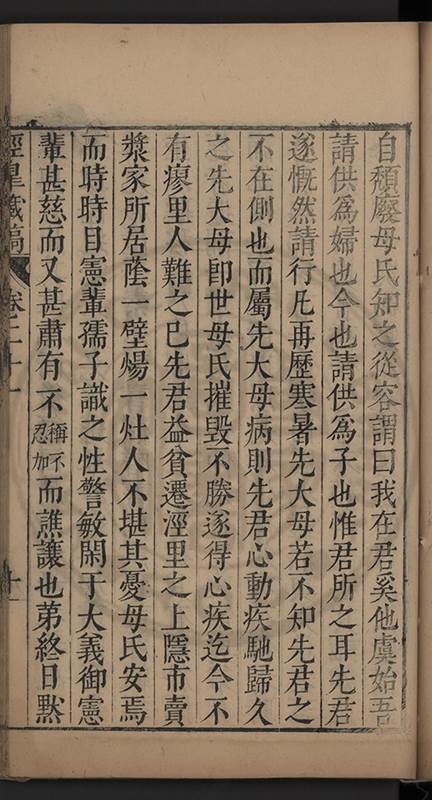 自頹廢母氏知之從容謂曰我在君奚他虞始吾
請供爲婦也今也請供爲子也惟君所之耳先君
遂慨然請行凡再歷寒暑先大母若不知先君之
不在側也而屬先大母病則先君心動疾馳歸久
之先大母卽世母氏摧毀不勝遂得心疾迄今不
有瘳里人難之已先君益貧遷涇里之上隱市賣
漿家所居蔭一壁煬一灶人不堪其憂母氏安焉
而時時目憲輩孺子識之性警敏閑于大義御憲
輩甚慈而又甚肅有一不稱不忍加而譙讓也苐終日默
涇皐藏稿
卷二十一
十一